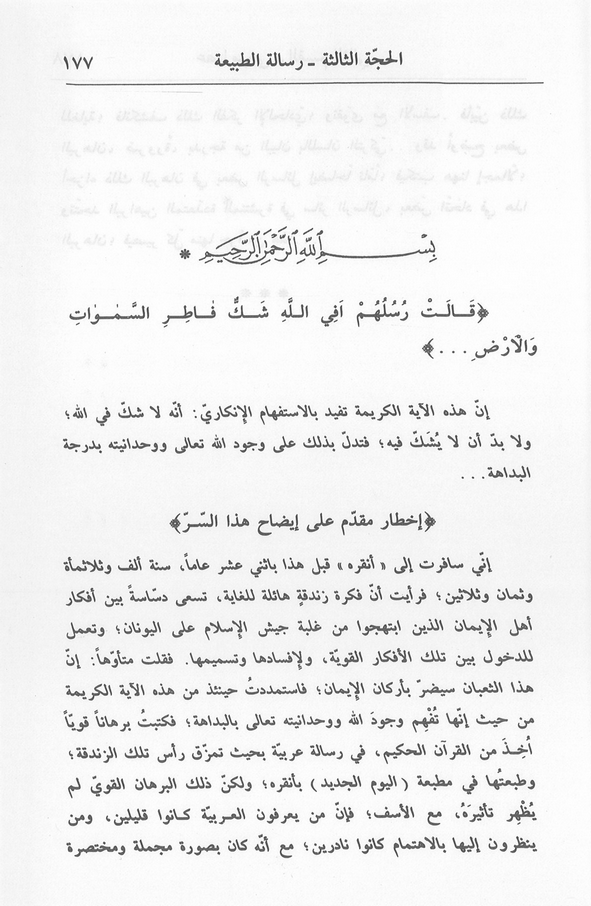 الحجّة الثالثة ـ رسالة الطبيعة ١٧٧
بِسْمِ اللَّهِ الرَّحْمٰنِ الرَّحِيمِ *
﴿قَـالَـتْ رُسُلُهُمْ اَفِي اللَّهِ شَكٌّ فٰـاطِـرِ السَّمٰـوٰاتِ
وَالْاَرْضِ ...﴾
إنّ هذه الآية الكريمة تفيد بالاستفهام الإنكاريّ: أنّه لا شكّ في الله؛
ولا بدّ أن لا يُشَكّ فيه؛ فتدلّ بذلك على وجود الله تعالى ووحدانيته بدرجة
البداهة...
﴿إخطار مقدّم على إيضاح هذا السّرّ﴾
إنّي سافرت إلى «أنقره» قبل هذا باثني عشر عاماً، سنة ألف وثلاثمأة
وثمان وثلاثين؛ فرأيت أنّ فكرة زندقةٍ هائلة للغاية، تسعى دسّاسةً بين أفكار
أهل الإيمان الذين ابتهجوا من غلبة جيش الإسلام على اليونان؛ وتعمل
للدخول بين تلك الأفكار القويّة، ولإفسادها وتسميمها. فقلت متأوّهاً: إنّ
هذا الثعبان سيضرّ بأركان الإيمان؛ فاستمددتُ حينئذ من هذه الآية الكريمة
من حيث إنّها تُفْهِم وجودَ الله ووحدانيته تعالى بالبداهة؛ فكتبتُ برهاناً قويّاً
اُخِذَ من القرآن الحكيم، في رسالة عربيّة بحيث تمزّق رأس تلك الزندقة؛
وطبعتُها في مطبعة (اليوم الجديد) بأنقره؛ ولكنّ ذلك البرهان القويّ لم
يُظْهِر تأثيرَهُ، مع الأسف؛ فإنّ من يعرفون العربيّة كـانوا قليلين، ومن
ينظرون إليها بالاهتمام كانوا نادرين؛ مع أنّه كان بصورة مجملة ومختصرة